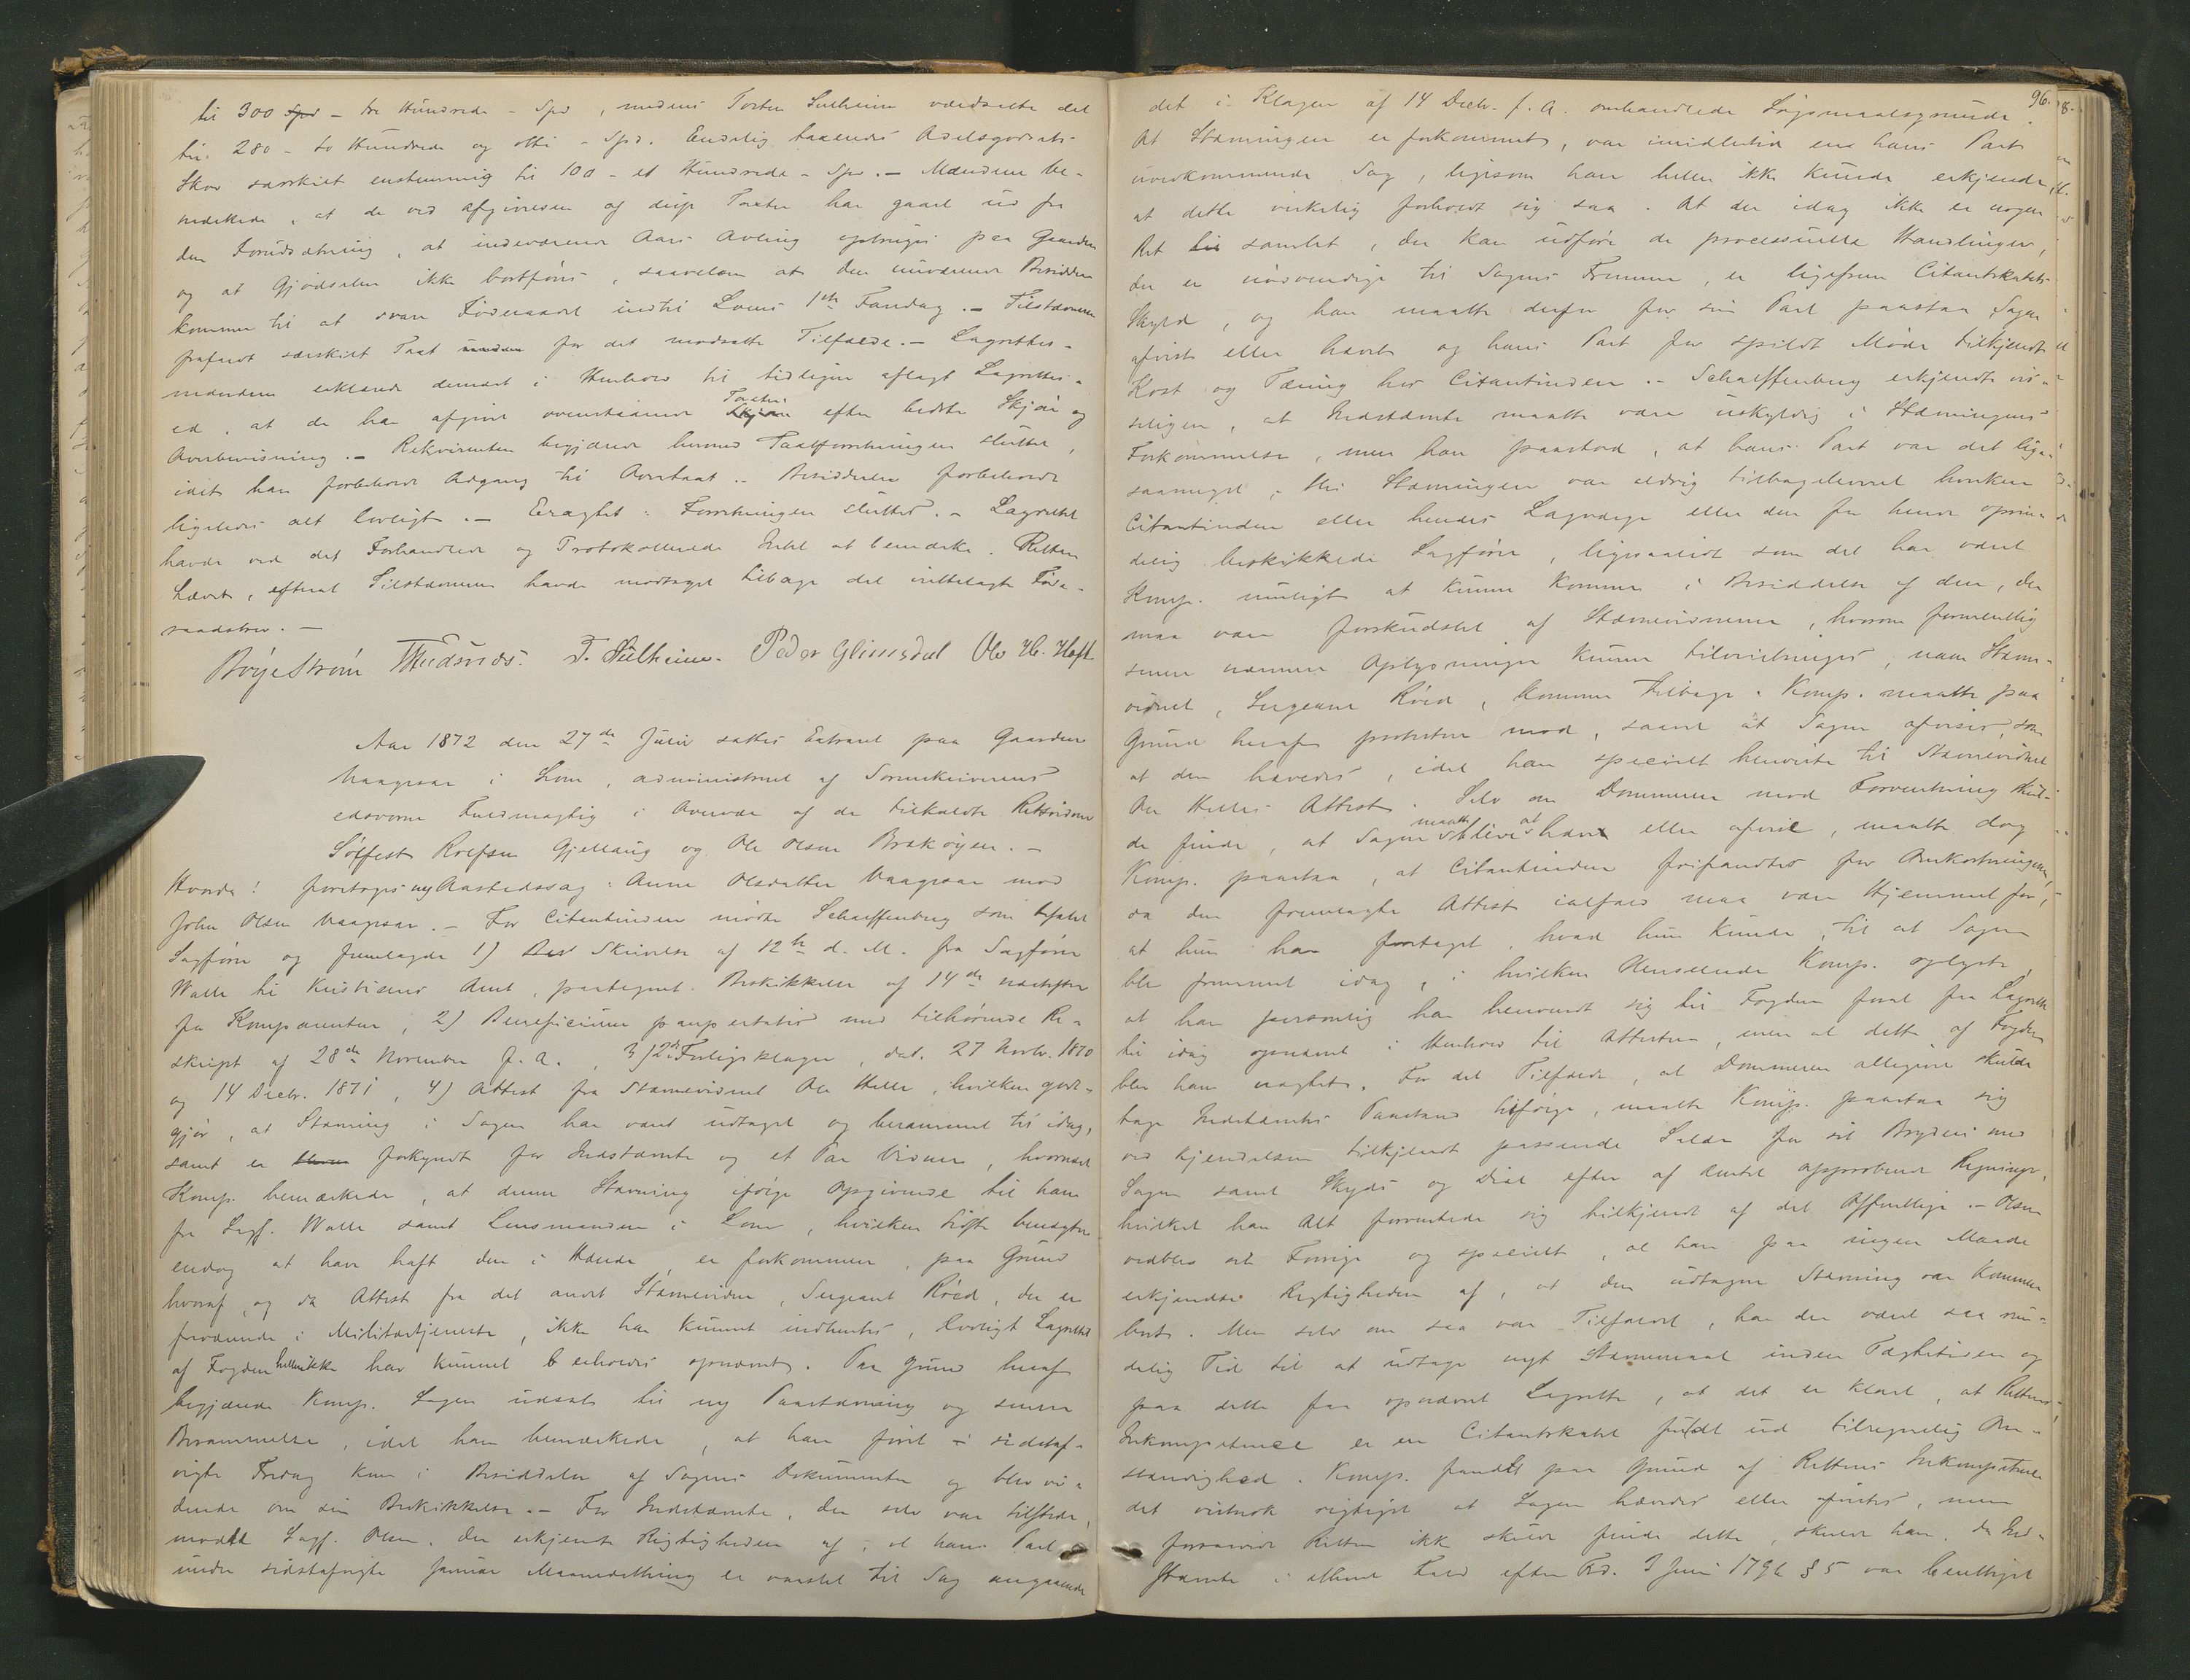 til 300 Spd - tre Hundrede - Spd, medens Torsten Sulheim værdsatte det
til 280 - to Hundrede og otti - Spd. Endelig taxeredes Adelsgodsets
Skov særskilt enstemmig til 100 - et Hundrede - Spd. - Mændene be-
mærkede, at de ved Afgivelsen af disse Taxter har gaaet ud fra
den Forudsætning, at indeværende Aars Avling opbruges paa Gaarden
og at Gjødselen ikke bortføres, saavelsom at den nuværende Besidder
kommer til at svare Føderaadet indtil Loms 1ste Faredag. - Tilstævnerne
frafaldt særskilt Taxt for det modsatte Tilfælde. - Lagrettes-
mændene erklærede dernæst i Henhold til tidligere aflagt Lagrettes-
ed, at de har afgivet ovenstaaende Taxter efter bedste Skjøn og
Overbevisning. - Rekvirenten begjærede hermed Taxtforretningen sluttet,
idet han forbeholdt Adgang til Overtaxt. - Besidderen forbeholdt
ligeledes alt lovligt. - Eragtet: Forretningen sluttes. - Lagrettet
havde ved det Forhandlede og Protokollerede Intet at bemærke. Retten
hævet, efterat Tilstævnerne havde modtaget tilbage det indbelagte Føde-
raadsbrev. -
Børge Strøm T. Sulheim. Peder Glimsdal Ole H. Hoft
Aar 1872 den 27de Juli sattes Extraret paa Gaarden
Vaagsaa i Lom, administreret af Sorenskriverens
edsvorne Fuldmægtig i Overvær af de tilkaldte Retsvidner
Sølfest Rolfsen Gjellaug og Ole Olsen Brakøyen. -
Hvorda! foretoges ny Aastedssag: Anne Olsdatter Vaagsaa mod
John Olsen Vaagsaa. - For Citantinden mødte Scharffenberg som befalet
Sagfører og fremlagde 1) Skrivelse af 12te d. M. fra Sagfører
Walle til Kristians Amt, paategnet Beskikkelse af 14de næstefter
for Komparenten, 2) Beneficium paupertatis med tilhørende Re-
skript af 28de November f. A., 3) 2de Forligsklager, dat. 27 Novbr. 1870
og 14 Decbr. 1871, 4) Attest fra Stævnevidnet Ole Helle, hvilken godt-
gjør, at Stævning i Sagen har været udtaget og berammet til idag,
samt er forkyndt for Indstævnte og et Par Vidner, hvornæst
Komp. bemærkede, at denne Stævning ifølge Opgivende til ham
fra Sagf. Walle samt Lensmanden i Lom, hvilken sidste benægtede
endog at have haft den i Hænde, er forkommen, paa Grund
hvoraf, og da Attest fra det andet Stævnevidne, Sergeant Røed, der er
fraværende i Militærtjeneste, ikke har kunnet indhentes, lovligt Lagrettet
af Fogden hellerikke har kunnet erholdes opnævnt. Paa Grund heraf
begjærede Komp. Sagen udsat til ny Paastævning og senere
Berammelse, idet han bemærkede, at han først i sidstaf-
vigte Fredag kom i Besiddelse af Sagens Dokumenter og blev vi-
dende om sin Beskikkelse. - For Indstævnte, der selv var tilstede,
mødte Sagf. Olsen, der erkjendte Rigtigheden af, at hans Part
under sidstafvigte Januar Maanedsthing er varslet til Sag angaaende
96.
det i Klagen af 14 Decbr. f. A. omhandlede Søgsmaalsgrunde.
At Stævningen er forkommet, var imidlertid en hans Part
uvedkommende Sag, ligesom han heller ikke kunde erkjende,
at dette virkelig forholdt sig saa. At der idag ikke er nogen
Ret samlet, der kan udføre de processuelle Handlinger,
der er nødvendige til Sagens Fremme, er ligefrem Citantskabets
Skyld, og han maatte derfor for sin Part paastaa Sagen
afvist eller hævet og hans Part for spildt Møde tilkjendt
Kost og Tæring hos Citantinden. - Scharffenberg erkjendte vis-
seligen, at Indstævnte maatte være uskyldig i Stævningens
Forkommelse, men han paastod, at hans Part var det lige-
saameget, thi Stævningen var aldrig tilbageleveret hverken
Citantinden eller hendes Lagværge eller den for hende oprin-
delig beskikkede Sagfører, ligesaalidt som det har været
Komp. muligt at kunne komme i Besiddelse af den, der
maa være forskudslet af Stævnevidnerne, hvorom formentlig
senere nærmere Oplysninger kunne tilveiebringes, naar Stævne-
vidnet, Sergeant Røed, kommer tilbage. Komp. maatte paa
Grund heraf protestere mod, saavel at Sagen afvises, som
at den hævedes, idet han specielt henviste til Stævnevidnet
Ole Helles Attest. Selv om Dommeren mod Forventning skul-
de finde, at Sagen maatte blive at hæve eller afvise, maatte dog
Komp. paastaa, at Citantinden frifandtes for Omkostningerne,
da den fremlagte Attest ialfald maa være Hjemmel for,
at hun har foretaget, hvad hun kunde, til at Sagen
blev fremmet idag, i hvilken Henseende Komp. oplyste,
at han personlig har henvendt sig til Fogden forat faa Lagrette
til idag opnævnt i Henhold til Attesten, men at dette af Fogden
blev ham nægtet. For det Tilfælde, at Dommeren alligevel skulde
tage Indstævntes Paastand tilfølge, maatte Komp. paastaa sig
ved Kjendelsen tilkjendt passende Salær for sit Bryderi med
Sagen samt Skyds og Diæt efter af Amtet approberet Regning,
hvilket han Alt forventede sig tilkjendt af det Offentlige. - Olsen
vedblev sit Forrige og specielt, at han paa ingen Maade
erkjendte Rigtigheden af, at den udtagne Stævning var kommen
bort. Men selv om saa var Tilfældet, har der været saa run-
delig Tid til at udtage nyt Stævnemaal inden Tægtetiden og
paa dette faa opnævnt Lagrette, at det er klart, at Rettens
Inkompetence er en Citantskabet fuldt ud tilregnelig Om-
stændighed. Komp. fandt paa Grund af Rettens Inkompetence
det vistnok rigtigst at Sagen hævedes eller afvistes, men
forsaavidt Retten ikke skulde finde dette, skulde han, da Ind-
stævnte i ethvert Fald efter Frd. 3 Juni 1796 § 5 var berettiget